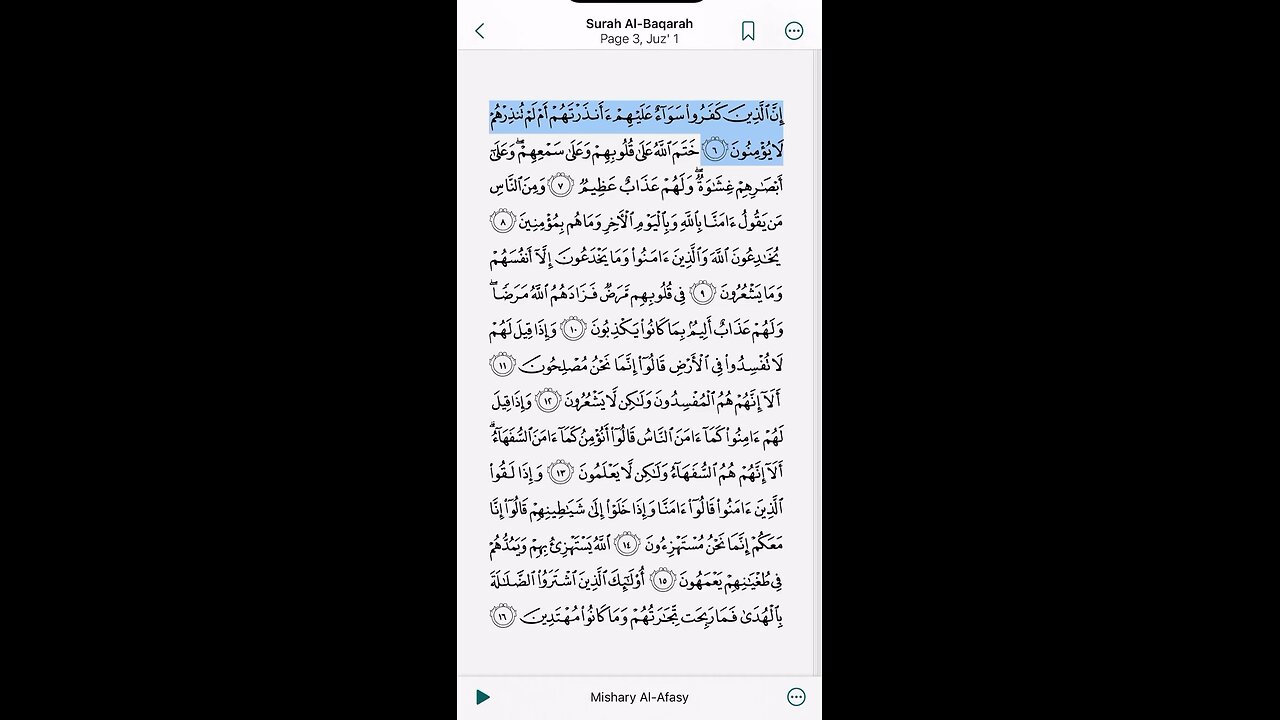 Surah Al-Baqarah
Page 3, Juz' 1
إِنَّ ٱلَّذِينَ كَفَرُوا۟ سَوَآءٌ عَلَيْهِمْ ءَأَنذَرْتَهُمْ أَمْ لَمْ تُنذِرْهُمْ
لَا يُؤْمِنُونَ ٦ خَتَمَ ٱللَّهُ عَلَىٰ قُلُوبِهِمْ وَعَلَىٰ سَمْعِهِمْ ۖ وَعَلَىٰٓ
أَبْصَٰرِهِمْ غِشَٰوَةٌ ۖ وَلَهُمْ عَذَابٌ عَظِيمٌ ٧ وَمِنَ ٱلنَّاسِ
مَن يَقُولُ ءَامَنَّا بِٱللَّهِ وَبِٱلْيَوْمِ ٱلْءَاخِرِ وَمَا هُم بِمُؤْمِنِينَ ٨
يُخَٰدِعُونَ ٱللَّهَ وَٱلَّذِينَ ءَامَنُوا۟ وَمَا يَخْدَعُونَ إِلَّآ أَنفُسَهُمْ
وَمَا يَشْعُرُونَ ٩ فِى قُلُوبِهِم مَّرَضٌ فَزَادَهُمُ ٱللَّهُ مَرَضًا ۖ
وَلَهُمْ عَذَابٌ أَلِيمٌۢ بِمَا كَانُوا۟ يَكْذِبُونَ ١٠ وَإِذَا قِيلَ لَهُمْ
لَا تُفْسِدُوا۟ فِى ٱلْأَرْضِ قَالُوٓا۟ إِنَّمَا نَحْنُ مُصْلِحُونَ ١١
أَلَآ إِنَّهُمْ هُمُ ٱلْمُفْسِدُونَ وَلَٰكِن لَّا يَشْعُرُونَ ١٢ وَإِذَا قِيلَ
لَهُمْ ءَامِنُوا۟ كَمَآ ءَامَنَ ٱلنَّاسُ قَالُوٓا۟ أَنُؤْمِنُ كَمَآ ءَامَنَ ٱلسُّفَهَآءُ ۗ
أَلَآ إِنَّهُمْ هُمُ ٱلسُّفَهَآءُ وَلَٰكِن لَّا يَعْلَمُونَ ١٣ وَإِذَا لَقُوا۟
ٱلَّذِينَ ءَامَنُوا۟ قَالُوٓا۟ ءَامَنَّا وَإِذَا خَلَوْا۟ إِلَىٰ شَيَٰطِينِهِمْ قَالُوٓا۟ إِنَّا
مَعَكُمْ إِنَّمَا نَحْنُ مُسْتَهْزِءُونَ ١٤ ٱللَّهُ يَسْتَهْزِئُ بِهِمْ وَيَمُدُّهُمْ
فِى طُغْيَٰنِهِمْ يَعْمَهُونَ ١٥ أُو۟لَٰٓئِكَ ٱلَّذِينَ ٱشْتَرَوُا۟ ٱلضَّلَٰلَةَ
بِٱلْهُدَىٰ فَمَا رَبِحَت تِّجَٰرَتُهُمْ وَمَا كَانُوا۟ مُهْتَدِينَ ١٦
Mishary Al-Afasy